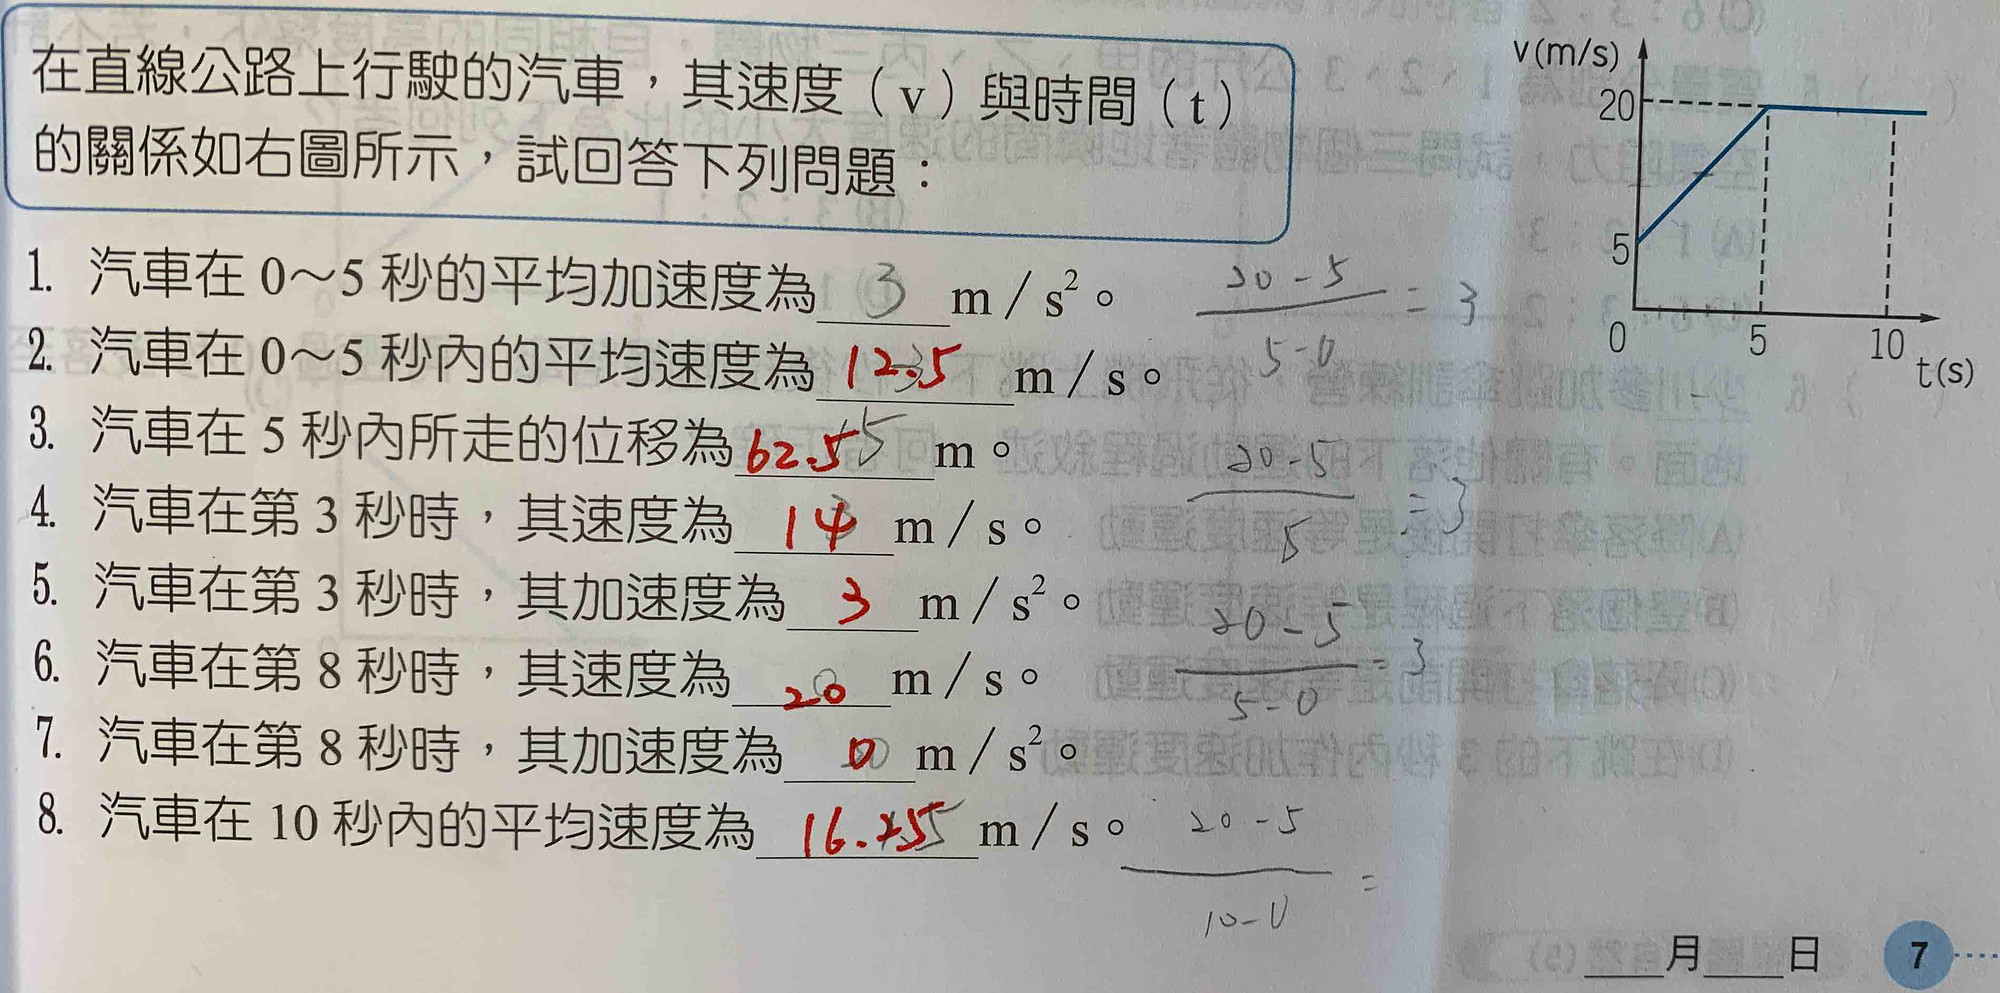 在直線公路上行駛的汽車，其速度（v）與時間（t）
的關係如右圖所示，試回答下列問題：
v(m/s)
20
5
0
5
10
t(s)
1. 汽車在 0～5 秒的平均加速度為 3 m／s²。
20-5
5-0
= 3
2. 汽車在 0～5 秒內的平均速度為 12.5 m／s。
3. 汽車在 5 秒內所走的位移為 62.5 m。
20-5
5
= 3
4. 汽車在第 3 秒時，其速度為 14 m／s。
5. 汽車在第 3 秒時，其加速度為 3 m／s²。
20-5
5-0
= 3
6. 汽車在第 8 秒時，其速度為 20 m／s。
7. 汽車在第 8 秒時，其加速度為 0 m／s²。
8. 汽車在 10 秒內的平均速度為 16.25 m／s。
20-5
10-0
=
月 日
7